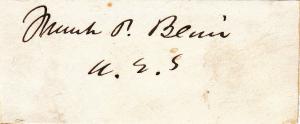 Frank P. Blair
U. S. S